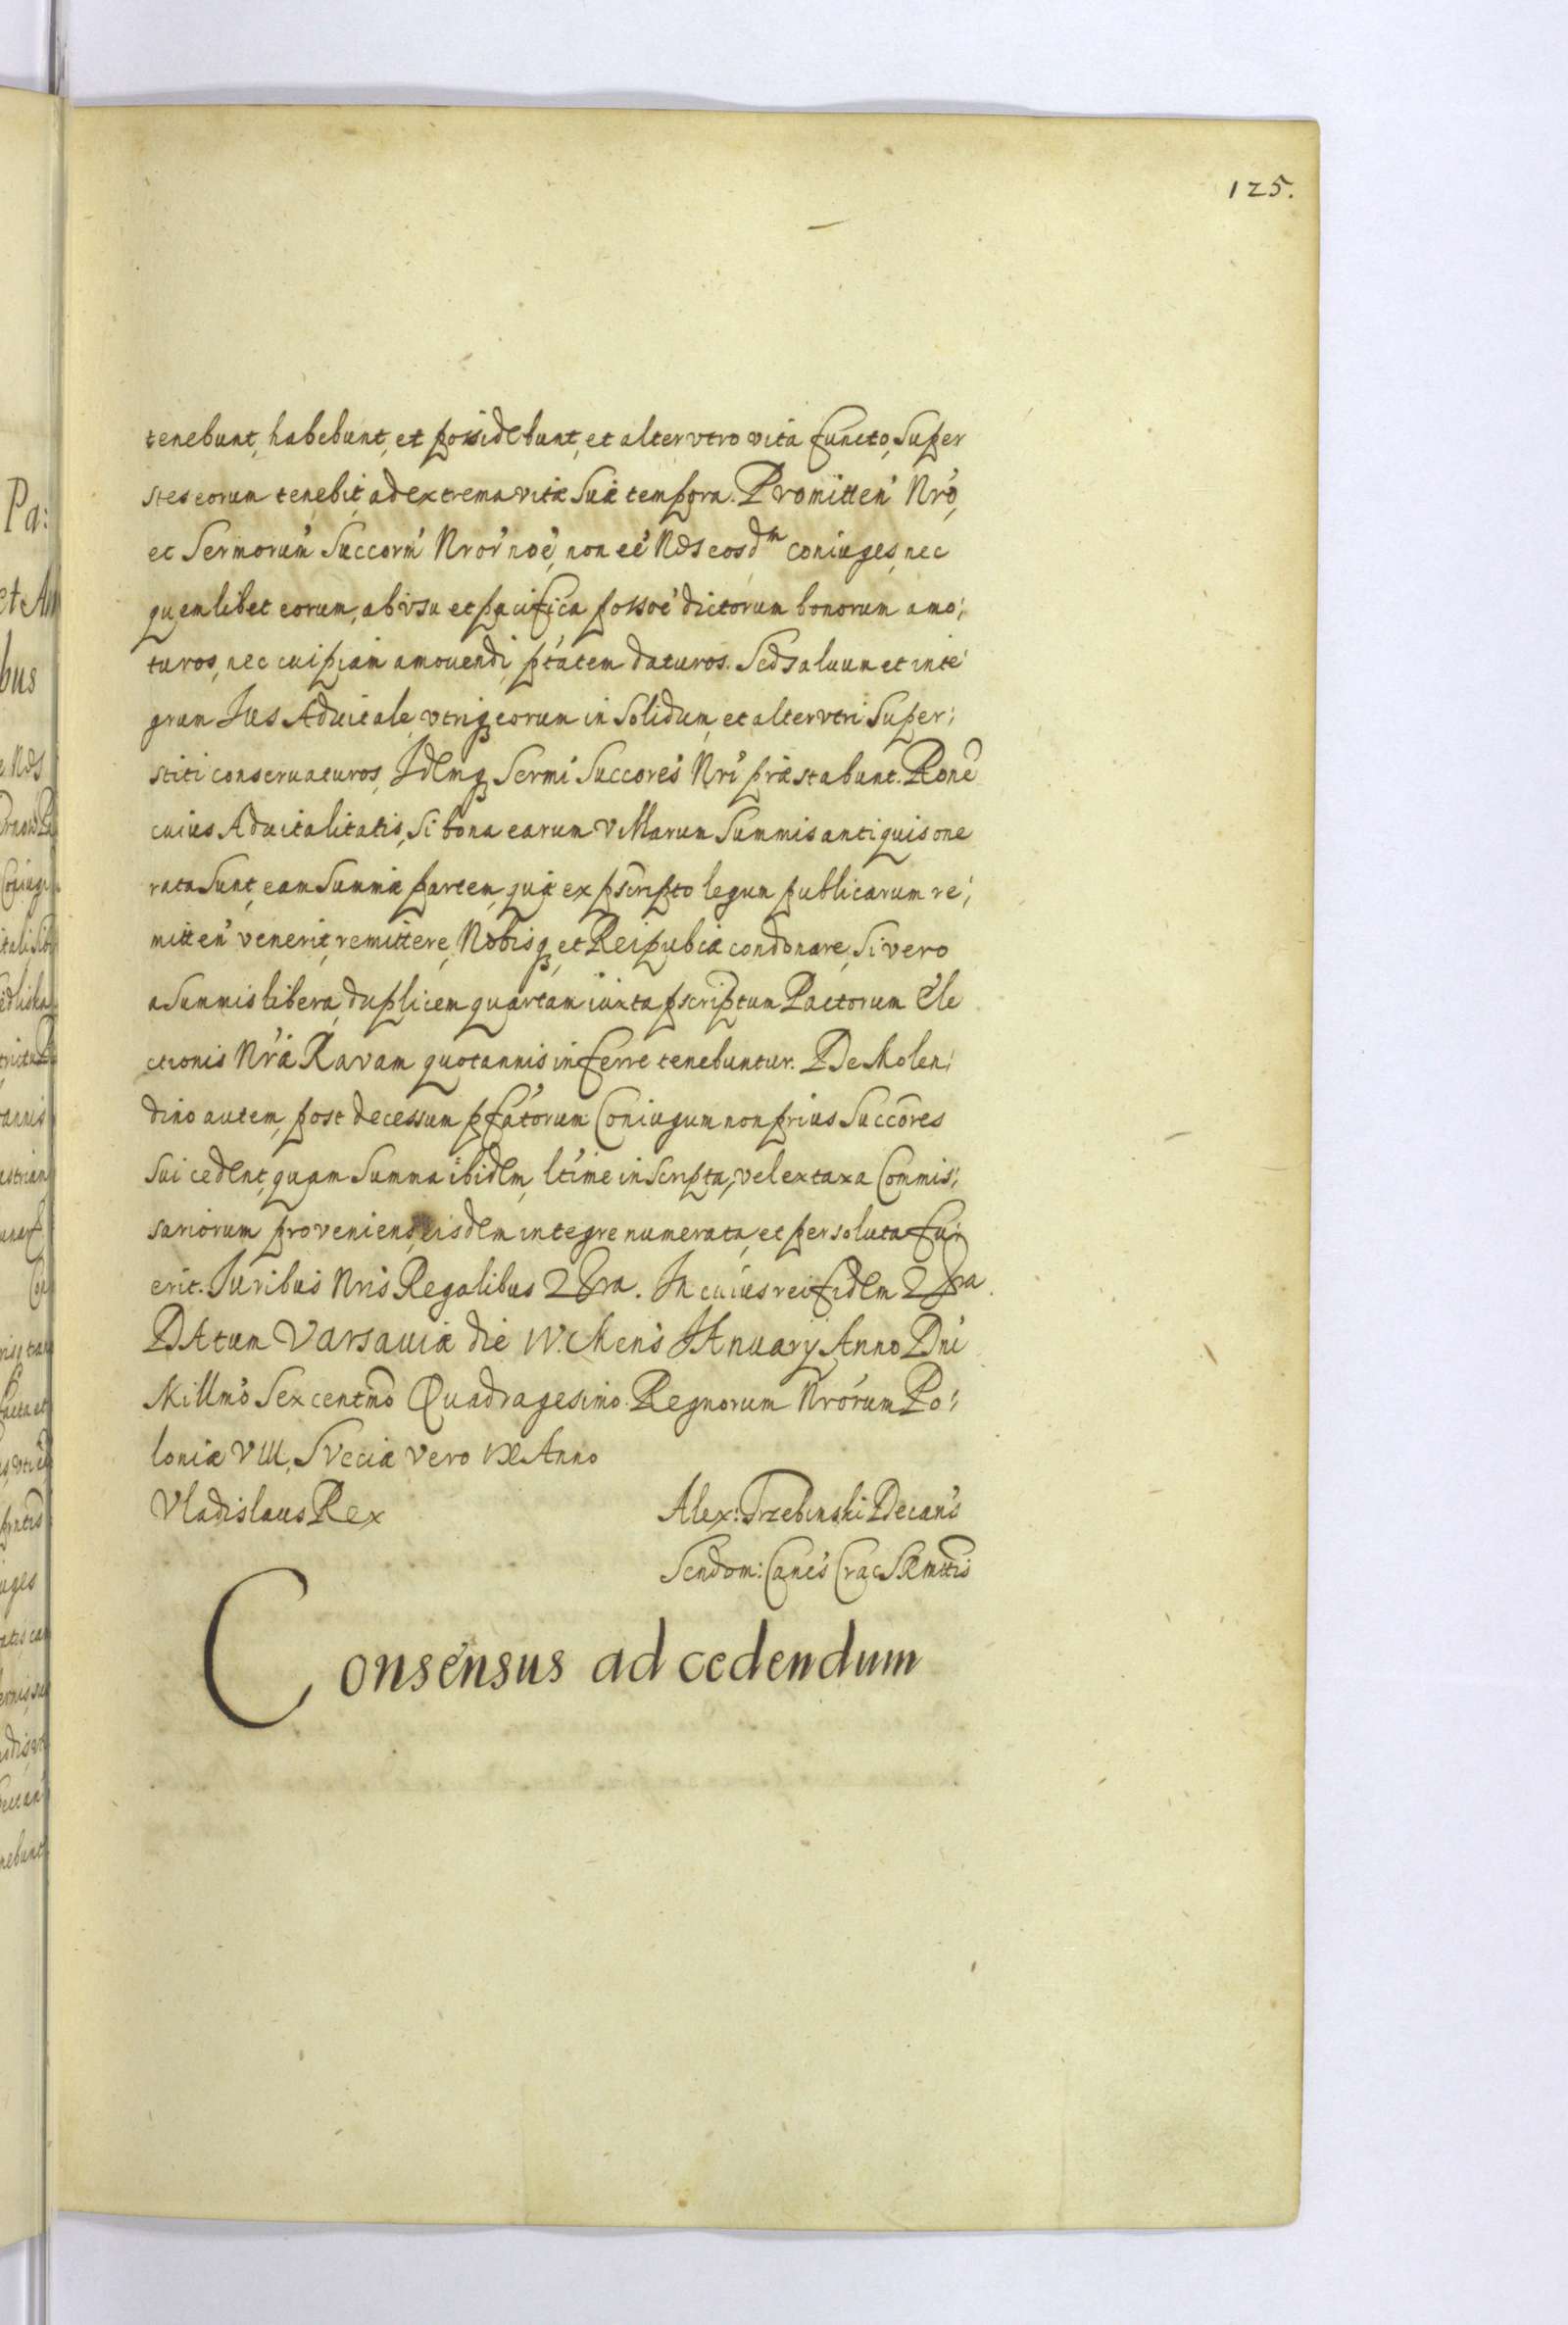 125.
tenebunt, habebunt, et possidebunt, et alter vtro vita functo, Super
stes eorum tenebit, ad extrema vitæ Suæ tempora. Promitten' Nr'o,
et Sermorum' Succorm' Nror' noe', non ee' Nos eosdm coniuges, nec
quemlibet eorum, ab vsu et pacifica possoe' dictorum bonorum amo:
turos, nec cuipiam amouendi, ptatem daturos. Sed saluum et inte'
grum Ius Aduitale, vtriq3 eorum in Solidum, et alter vtri Super:
stiti conseruaturos, Idemq3 Sermi' Succores' Nri' præstabunt. Rone
cuius Aduitalitatis, Si bona earum Vllarum Summis antiquis one
rata Sunt, eam Summæ partem, quæ ex pscripto legum publicarum re:
mitten' venerit, remittere, Nobisq3, et Reipubcæ condonare, Si vero
a Summis libera, duplicem quartam iuxta pscriptum Pactorum Ele
ctionis Nr'æ Ravam quotannis inferre tenebuntur. De Molen:
dino autem, post decessum pfatorum Coniugum non prius Succores
Sui cedent, quam Summa ibidem, ltime inscripta, vel ex taxa Commis:
sariorum proveniens, eisdem integre numerata, et persoluta fu:
erit. Iuribus Nris Regalibus &ra. In cuius rei fidem &ra.
DAtum Varsauiæ die IV. Mens' IAnuarij Anno Dni'
Millmo' Sexcentmo Quadragesimo. Regnorum Nrorum Po:
loniæ VIII, SVeciæ Vero IX Anno
Vladislaus Rex
Alex: Trzebinski Decan's
Sendom: Canc's Crac SRMttis
Consensus ad cedendum